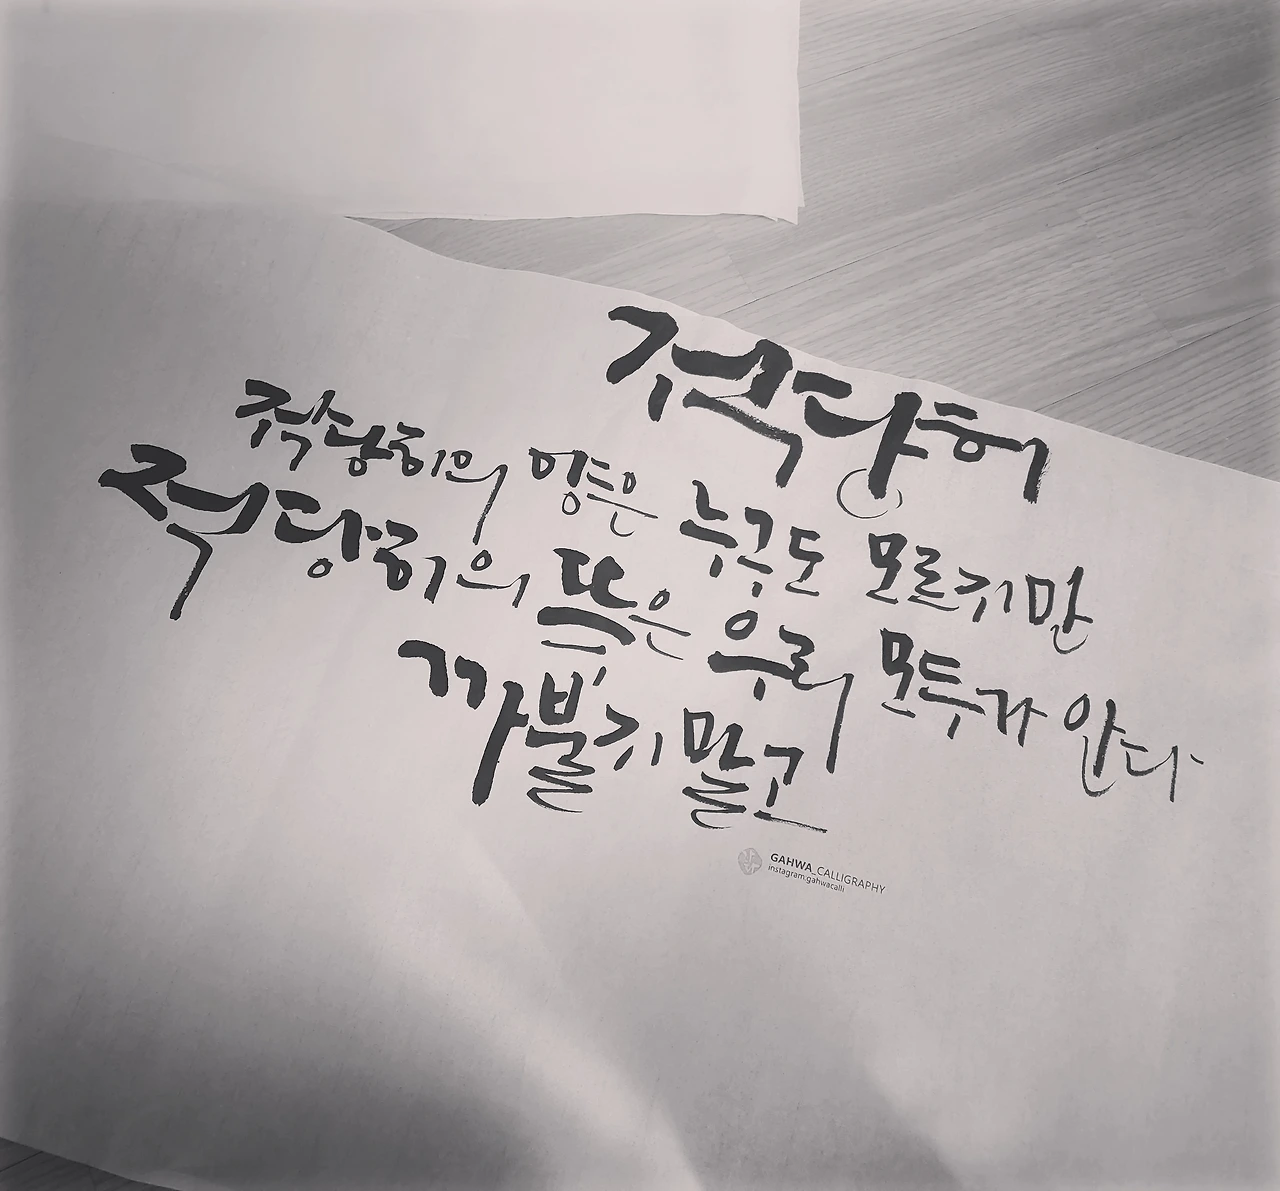 적당히
적당히의 양은 누구도 모르지만
적당히의 뜻은 우리 모두가 안다
까불지 말고
GAHWA_CALLIGRAPHY
instagram:gahwacalli